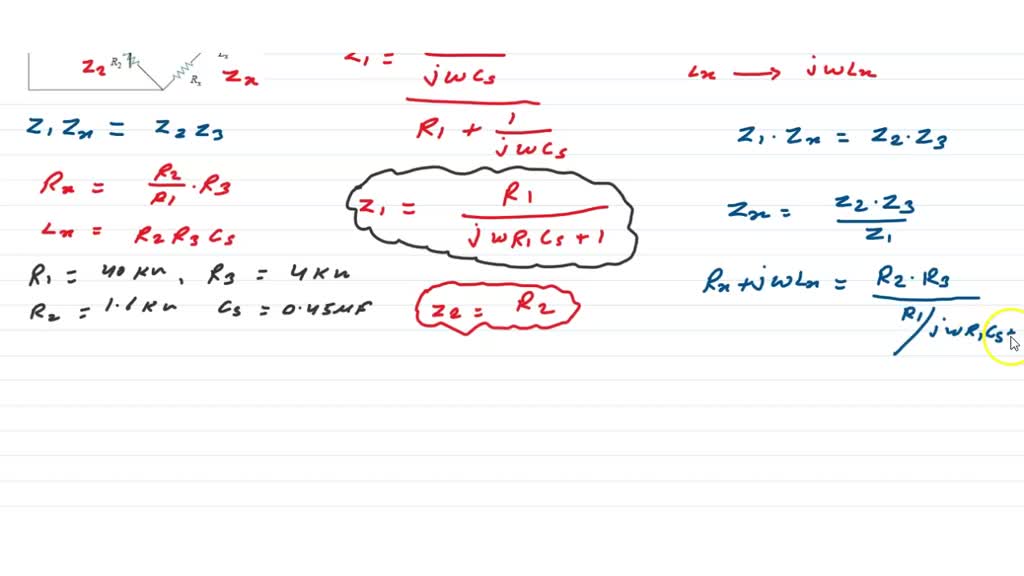 Z2 R2 Zx Rx
Z1 Zx = Z2 Z3
Rx = R2/R1 · R3
Lx = R2 R3 Cs
R1 = 40 KΩ, R3 = 4 KΩ
R2 = 1.6 KΩ Cs = 0.45 μF
Z1 =
jωCs
R1 + 1/jωCs
Z1 = R1 / jωR1Cs + 1
Z2 = R2
Lx → jωLx
Z1 · Zx = Z2 · Z3
Zx = Z2 · Z3 / Z1
Rx + jωLx = R2 · R3
R1 / jωR1Cs +